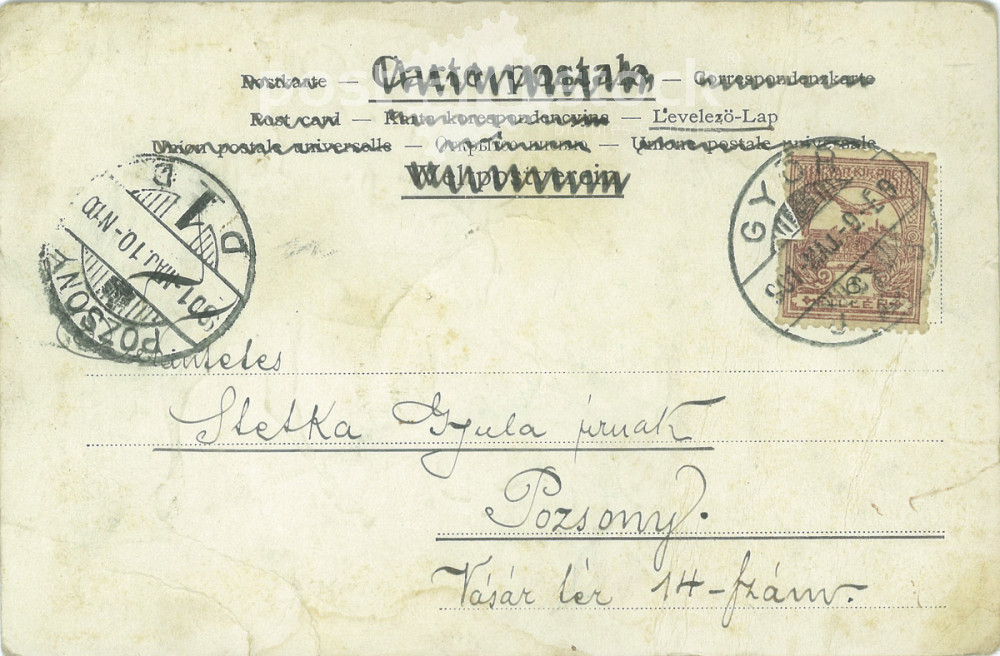 Postkarte — Carte postale — Correspondenzkarte
Post card — Karta korespondencyjna — Levelező-Lap
Union postale universelle — Открытое письмо — Unione postale universale
Weltpostverein
GYŐR
MAGYAR KIR. POSTA
FILLÉR
POZSONY
901 MÁJ. 10-N 10
D 1 E
Tekintetes
Stetka Gyula úrnak
Pozsony.
Vásár tér 14-szám.